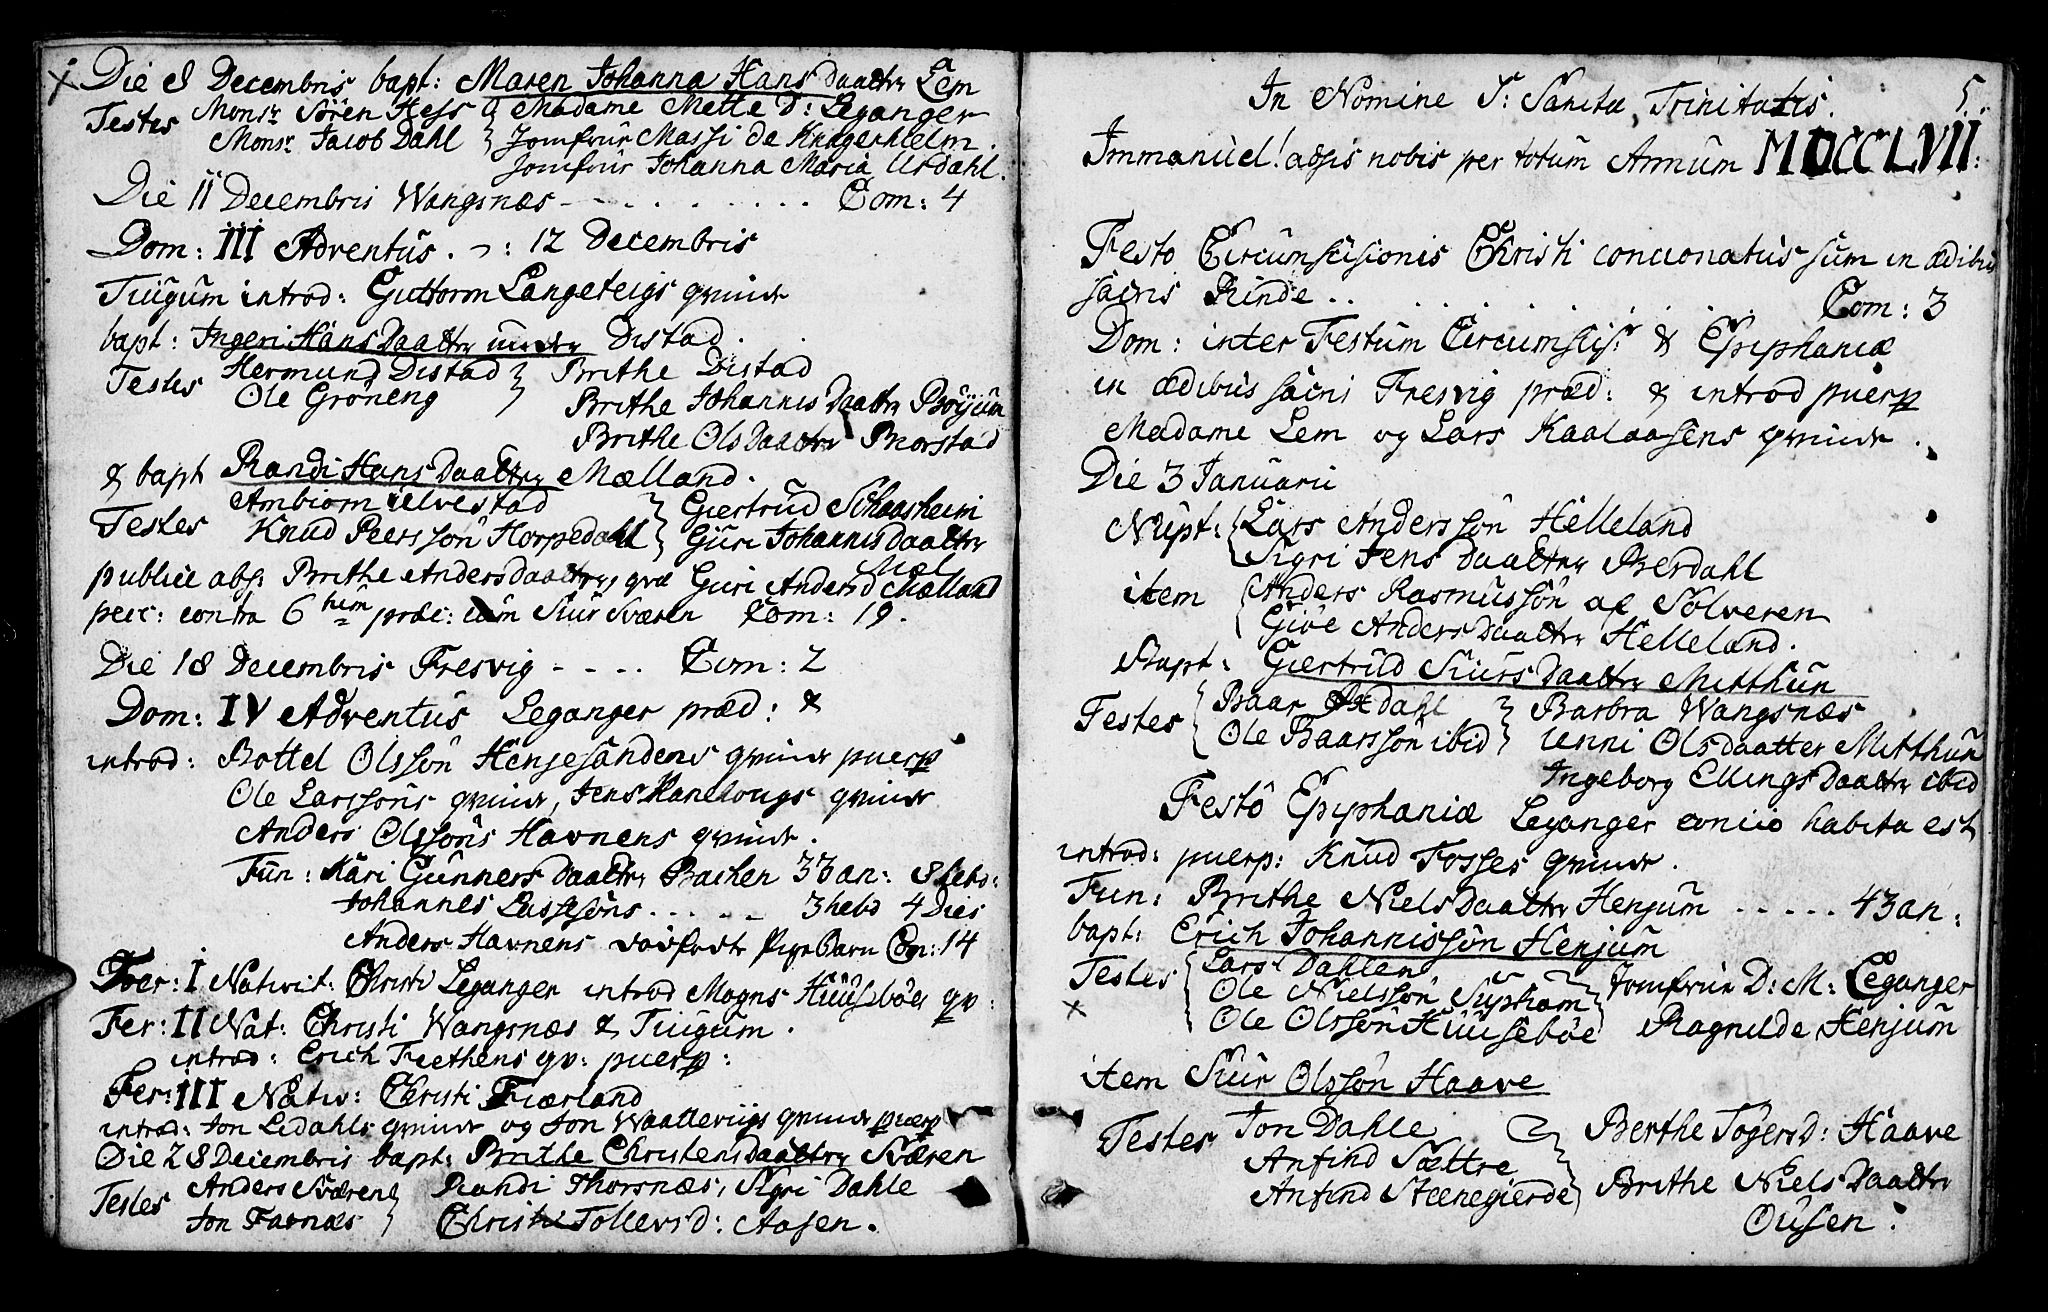 Die 8 Decembris bapt: Maren Johanna Hans Daattr Lem
Testes Monsr Sören Hess } Madame Mette D: Leganger
Monsr Jacob Dahl } Jomfrur Massi de Knagenhielm.
Jomfrur Johanna Maria Urdahl.
Die 11 Decembris Wangsnæs - - - - - Com: 4
Dom: III Adventus. -: 12 Decembris
Tiugum introd: Guttorm Langeteigs qvinde
bapt: Ingeri Hans Daattr Distad.
Testes Hermund Distad } Brithe Distad
Ole Gröneng } Brithe Johannis Daattr Böyum
Brithe Ols Daattr Norstad
& bapt Randi Hans Daattr Mælland.
Ambiorn Ulvestad } Giertrud Schaasheim
Testes Knud Peersson Horpedahl } Guri Johannis Daattr
Mæl
publice abs: Brithe Anders daattr, qvæ Guri Andersd Mælland
pecc: contra 6tum præc: cum Siur Sværen Com: 19.
Die 18 Decembris Fresvig - - - - Com: 2
Dom: IV Adventus Leganger præd: &
introd: Bottel Olsson Henjesandens qvinde puerp
Ole Larssons qvinde, Jens Haneborgs qvinde
Anders Olssons Havnens qvinde.
Fun: Kari Gunners Daattr Bachen 33 an: 8 hebd:
Johannes Lassesöns - - - - 3 hebd 4 Dies
Anders Havnens dödfødte Pige Barn Com: 14
Fer: I Nativit: Christi Leganger introd Mogns Huuseböes qv:
Fer: II Nat: Christi Wangsnæs & Tiugum.
introd: Erich Freethens qv: puerp:
Fer: III Nativ: Christi Fiærland
introd: Jon Ledahls qvinde og Jon Waattevigs qvinde puerp
Die 28 Decembris bapt: Brithe Christens Daattr Sværen
Testes Anders Sværen } Randi Thorsnæs, Sigri Dahle
Jon Farnæs } Christi Tollevsd: Aasen.
5.
In Nomine S: Sanctæ Trinitatis.
Immanuel! adsis nobis per totum Annum MDCCLVII:
Festo Circumscisionis Christi concionatus sum in ædibus
sacris Rinde . . . . . . Com: 3
Dom: inter Festum Circumscis: & Epiphaniæ
in ædibus sacris Fresvig præd: & introd puerp
Madame Lem og Lars Kaalaasens qvinde.
Die 3 Januarii
Nupt: { Lars Andersson Helleland
Sigri Jens Daattr Berdahl
item { Anders Rasmussön af Solveren
Giöe Anders Daattr Helleland.
Bapt: Giertrud Siurs Daattr Mitthun
Testes { Baar Dahl } Barbra Wangsnæs
Ole Baarssön ibid } Unni Olsdaatter Mitthun
Ingeborg Ellings Daattr ibid
Festo Epiphaniæ Leganger concio habita est
introd: puerp: Knud Fosses qvinde.
Fun: Brithe Niels Daattr Henjum - - - - - 43 an:
bapt: Erich Johannissön Henjum
Testes { Lars Dahlen } Jomfrur D: M: Leganger
Ole Nielsson Supham
Ole Olssön Huusebøe Ragnilde Henjum
item Siur Olsson Haave
Testes Jon Dahle } Berthe Togersd: Haave
Anfind Sættre
Anfind Steenegierde } Brithe Niels Daattr
Ousen.